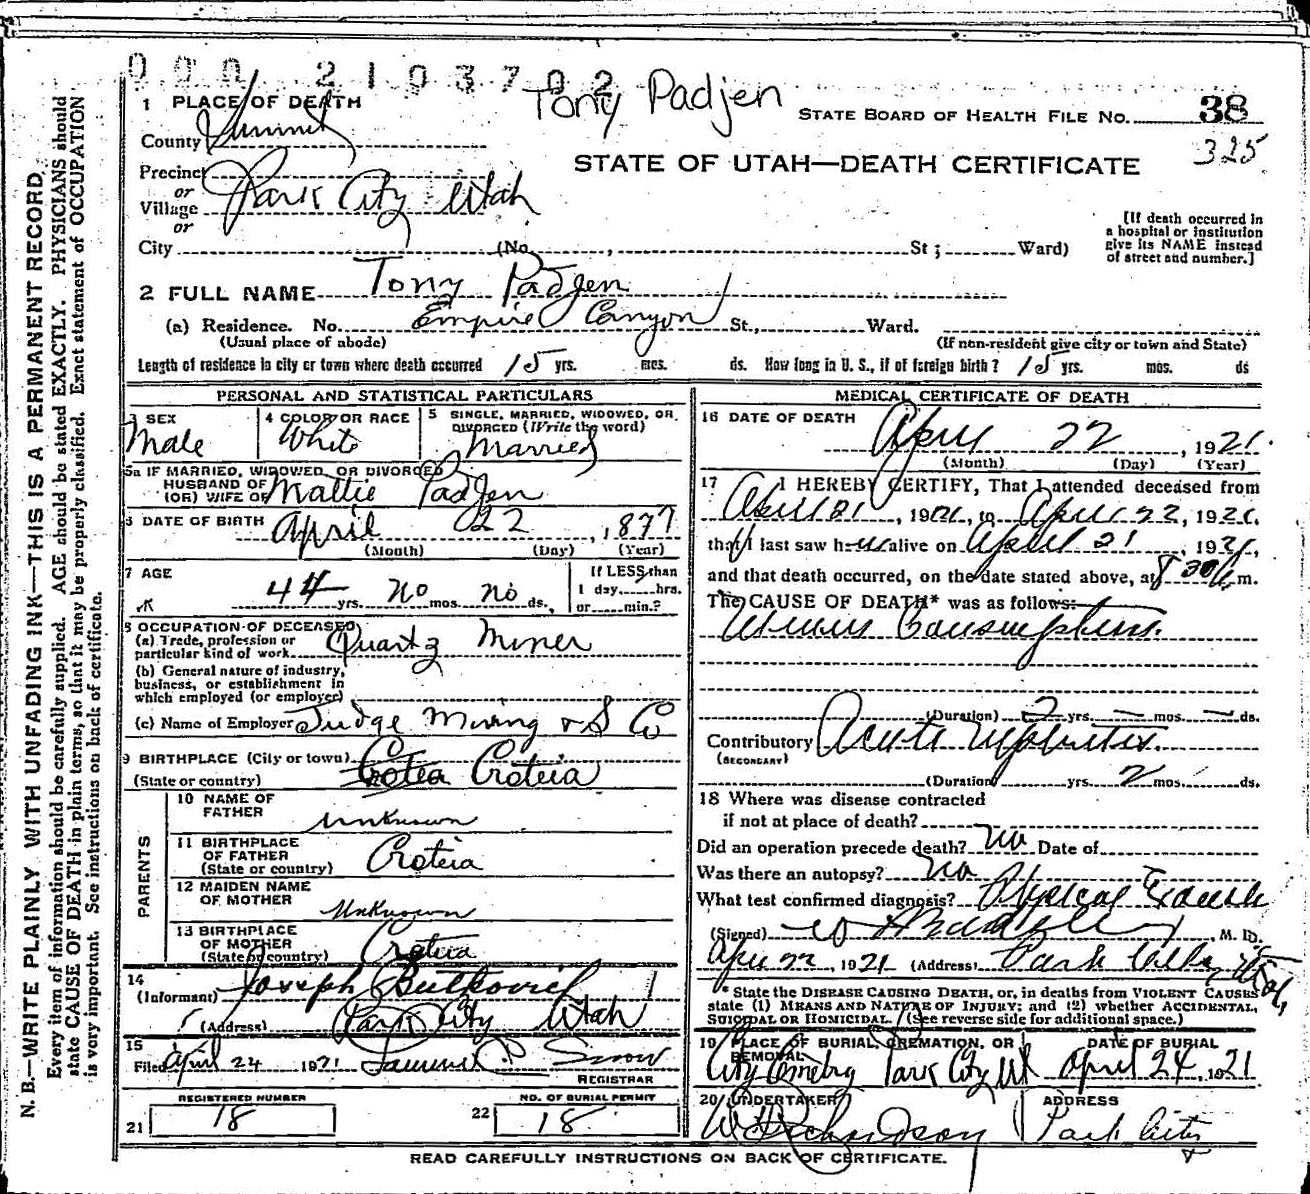 000 2103702
Tony Padjen
1 PLACE OF DEATH
STATE BOARD OF HEALTH FILE NO. 38
325
County Summit
STATE OF UTAH—DEATH CERTIFICATE
Precinct
or
Village Park City Utah
or
City (No. , St; Ward)
[If death occurred in
a hospital or institution
give its NAME instead
of street and number.]
2 FULL NAME Tony Padjen
(a) Residence. No. Empire Canyon St., Ward.
(Usual place of abode) (If non-resident give city or town and State)
Length of residence in city or town where death occurred 15 yrs. mos. ds. How long in U. S., if of foreign birth? 15 yrs. mos. ds
PERSONAL AND STATISTICAL PARTICULARS
3 SEX
Male
4 COLOR OR RACE
White
5 SINGLE, MARRIED, WIDOWED, OR
DIVORCED (Write the word)
Married
5a IF MARRIED, WIDOWED, OR DIVORCED
HUSBAND OF
(OR) WIFE OF Mattie Padjen
6 DATE OF BIRTH April 22, 1877
(Month) (Day) (Year)
7 AGE
44 yrs. No mos. no ds.,
If LESS than
1 day, hrs.
or min.?
8 OCCUPATION OF DECEASED
(a) Trade, profession or
particular kind of work Quartz Miner
(b) General nature of industry,
business, or establishment in
which employed (or employer)
(c) Name of Employer Judge Mining & S Co
9 BIRTHPLACE (City or town)
(State or country) Crotea Croteia
PARENTS
10 NAME OF
FATHER Unknown
11 BIRTHPLACE
OF FATHER
(State or country) Croteia
12 MAIDEN NAME
OF MOTHER Unknown
13 BIRTHPLACE
OF MOTHER
(State or country) Croteia
14
(Informant) Joseph Butkovich
(Address) Park City Utah
15
Filed April 24 1921 Snow
REGISTRAR
REGISTERED NUMBER
21 18
NO. OF BURIAL PERMIT
22 18
MEDICAL CERTIFICATE OF DEATH
16 DATE OF DEATH
April 22, 1921.
(Month) (Day) (Year)
17 I HEREBY CERTIFY, That I attended deceased from
April 21, 1921, to April 22, 1921.
that I last saw him alive on April 21, 1921,
and that death occurred, on the date stated above, at 8 30 m.
The CAUSE OF DEATH* was as follows:
Miners Consumption.
(Duration) 2 yrs. — mos. — ds.
Contributory Acute Nephritis.
(SECONDARY)
(Duration) yrs. 2 mos. ds.
18 Where was disease contracted
if not at place of death?
Did an operation precede death? No Date of
Was there an autopsy? No
What test confirmed diagnosis? Physical
(Signed) , M. D.
April 22, 1921 (Address) Park City Utah
* State the DISEASE CAUSING DEATH, or, in deaths from VIOLENT CAUSES
state (1) MEANS AND NATURE OF INJURY; and (2) whether ACCIDENTAL,
SUICIDAL OR HOMICIDAL. (See reverse side for additional space.)
19 PLACE OF BURIAL, CREMATION, OR
REMOVAL
City Cemetry Park City Ut
DATE OF BURIAL
April 24, 1921
20 UNDERTAKER
W Richardson
ADDRESS
Park City
READ CAREFULLY INSTRUCTIONS ON BACK OF CERTIFICATE.
N. B.—WRITE PLAINLY, WITH UNFADING INK—THIS IS A PERMANENT RECORD.
Every item of information should be carefully supplied. AGE should be stated EXACTLY. PHYSICIANS should
state CAUSE OF DEATH in plain terms, so that it may be properly classified. Exact statement of OCCUPATION
is very important. See instructions on back of certificate.